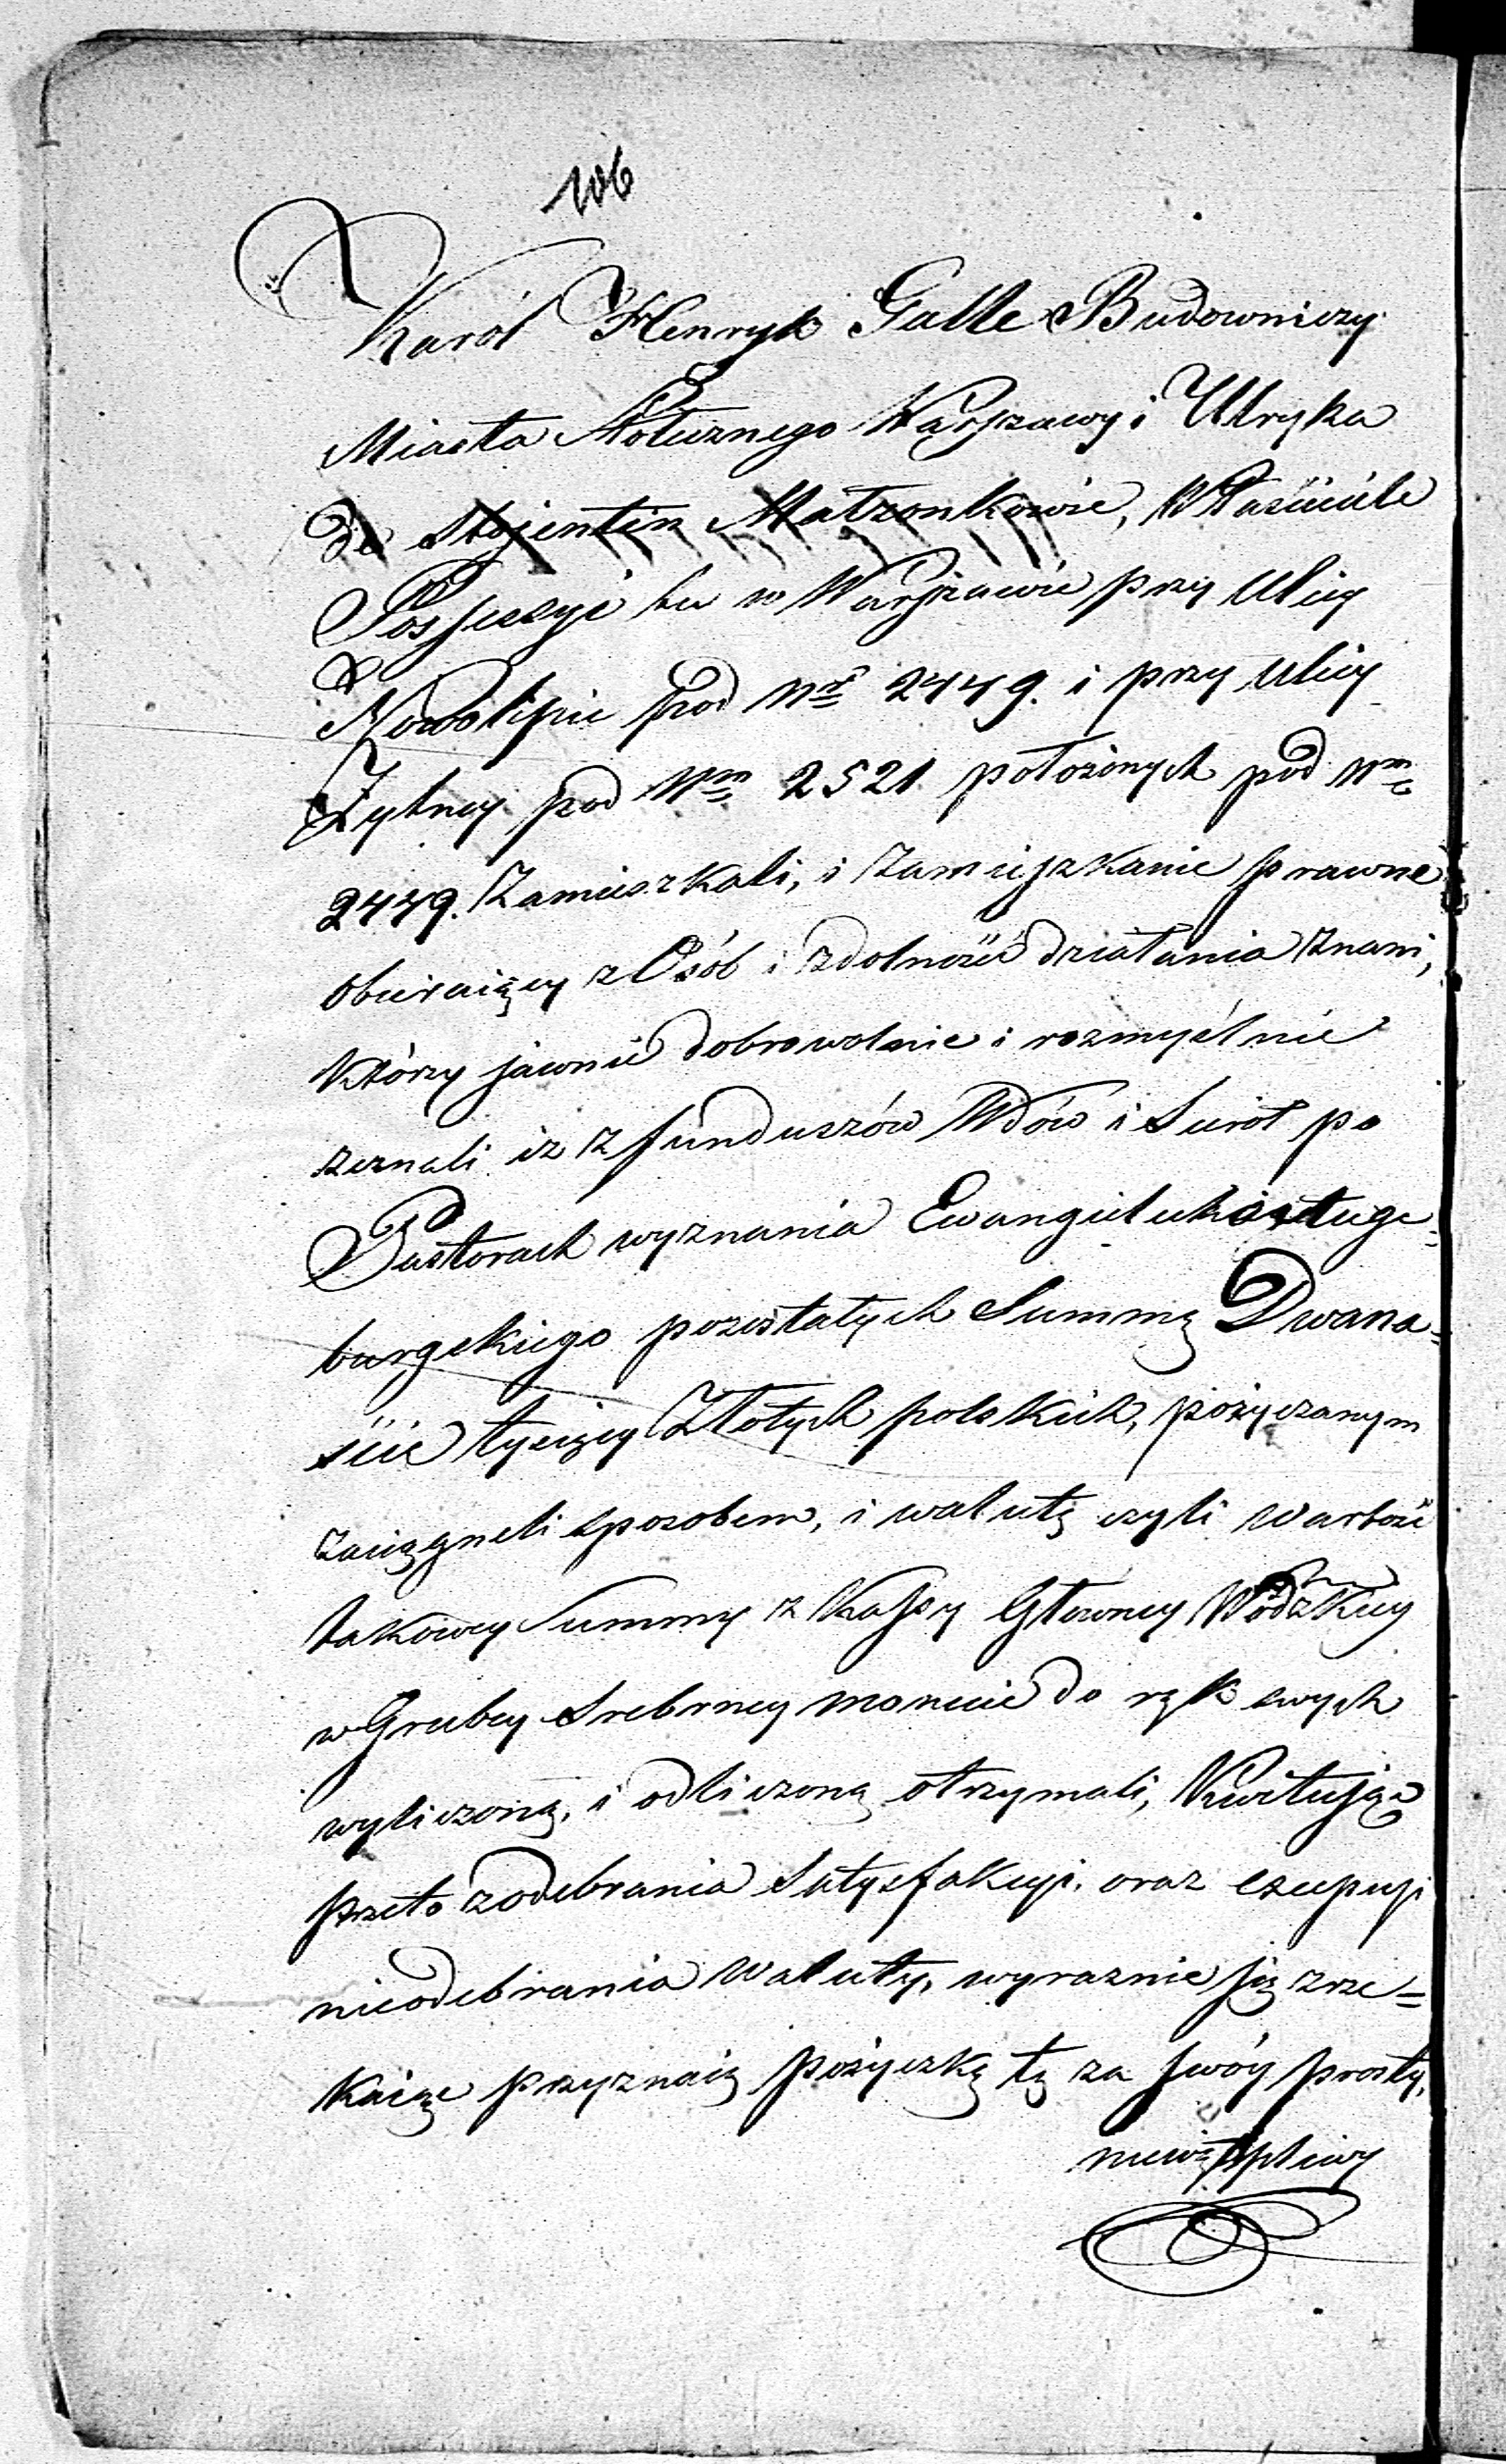 106
Karól Henryk Galle Budowniczy
Miasta Stołecznego Warszawy i Ulryka
de Stojentin Małżonkowie, Właściciele
Possessyi tu w Warszawie przy Ulicy
Nowolipie pod Nrẽ 2449. i przy ulicy
Żytney pod Nm 2521 położonych pod Nm
2449. Zamieszkali, i zamieszkanie prawne
obieraiący z Osób i zdolności działania znani,
którzy jawnie dobrowolnie i rozmyślnie
zeznali iz z funduszów Wdów i Sierot po
Pastorach wyznania Ewangielicko Auge=
burgskiego pozostałych Summę Dwana=
ście tysięcy Złotych polskich, pożyczanym
zaciągneli sposobem, i walutę czyli wartość
takowey Summy z Kassy Główney Wódzkiey
w Grubey Srebrney monecie do rąk swych
wyliczoną, i odliczoną otrzymali, Kwitując
przeto zodebrania Satysfakcyi, oraz excepcyi
nieodebrania waluty, wyraznie się zrze=
kaiąc przyznaią pożyczkę tę za swóy prosty,
niewątpliwy